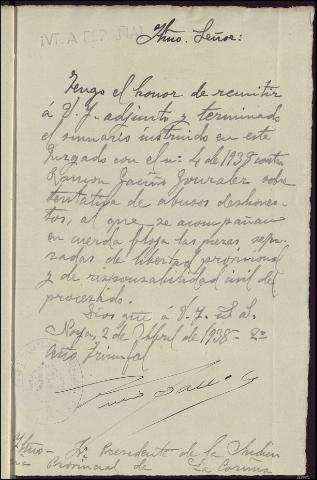 ¡VIVA ESPAÑA!
Iltmo. Señor:
Tengo el honor de remitir
á V. I. adjunto y terminado
el sumario instruido en este
Juzgado con el nº 4 de 1938 contra
Ramon González sobre
tentativa de abusos deshones-
tos, al que se acompañan
en cuerda floja las piezas sepa-
radas de libertad provisional
y de responsabilidad civil del
procesado.
Dios gue á V. I. ms. as.
Noya, 2 de Abril de 1938 - 2º
Año Triunfal
Iltmo. Sr. Presidente de la Audien
cia Provincial de La Coruña